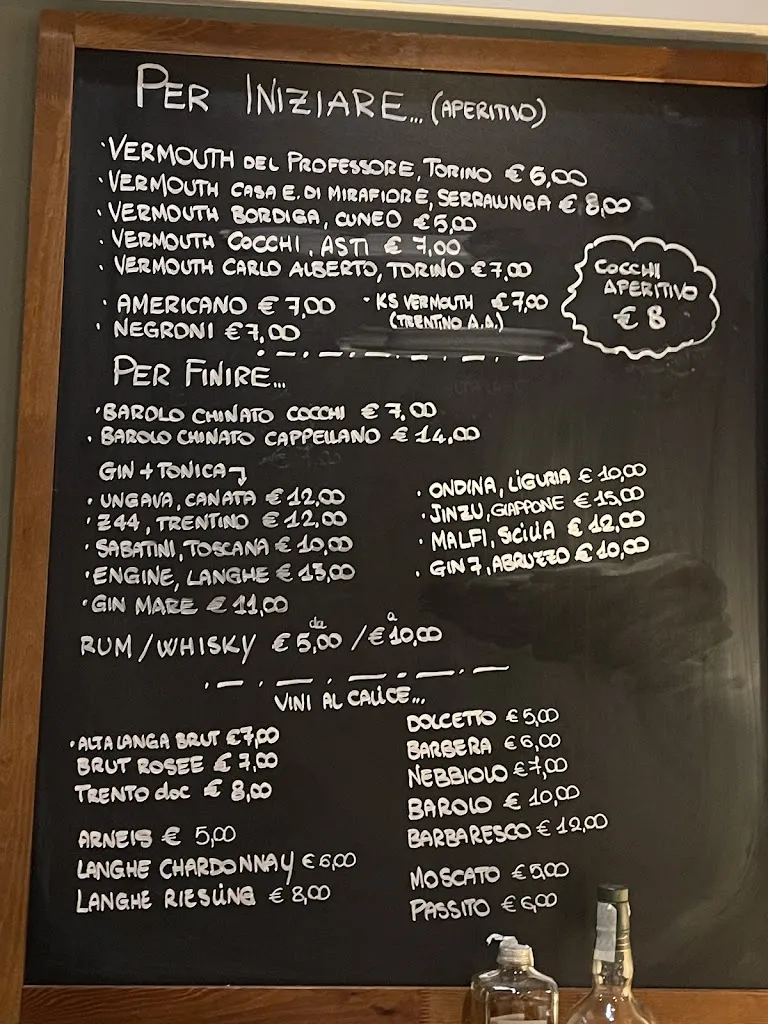 PER INIZIARE... (APERITIVO)
· VERMOUTH DEL PROFESSORE, TORINO € 6,00
· VERMOUTH CASA E. DI MIRAFIORE, SERRALUNGA € 8,00
· VERMOUTH BORDIGA, CUNEO € 5,00
· VERMOUTH COCCHI, ASTI € 7,00
· VERMOUTH CARLO ALBERTO, TORINO € 7,00
COCCHI
APERITIVO
€ 8
· AMERICANO € 7,00
· NEGRONI € 7,00
· KS VERMOUTH € 7,00
(TRENTINO A.A.)
PER FINIRE...
· BAROLO CHINATO COCCHI € 7,00
· BAROLO CHINATO CAPPELLANO € 14,00
GIN + TONICA
· UNGAVA, CANATA € 12,00
· Z44, TRENTINO € 12,00
· SABATINI, TOSCANA € 10,00
· ENGINE, LANGHE € 13,00
· GIN MARE € 11,00
· ONDINA, LIGURIA € 10,00
· JINZU, GIAPPONE € 15,00
· MALFI, SCILIA € 12,00
· GIN 7, ABRUZZO € 10,00
RUM/WHISKY da € 5,00 / a € 10,00
VINI AL CALICE...
· ALTA LANGA BRUT € 7,00
BRUT ROSEE € 7,00
TRENTO doc € 8,00
ARNEIS € 5,00
LANGHE CHARDONNAY € 6,00
LANGHE RIESLING € 8,00
DOLCETTO € 5,00
BARBERA € 6,00
NEBBIOLO € 7,00
BAROLO € 10,00
BARBARESCO € 12,00
MOSCATO € 5,00
PASSITO € 6,00